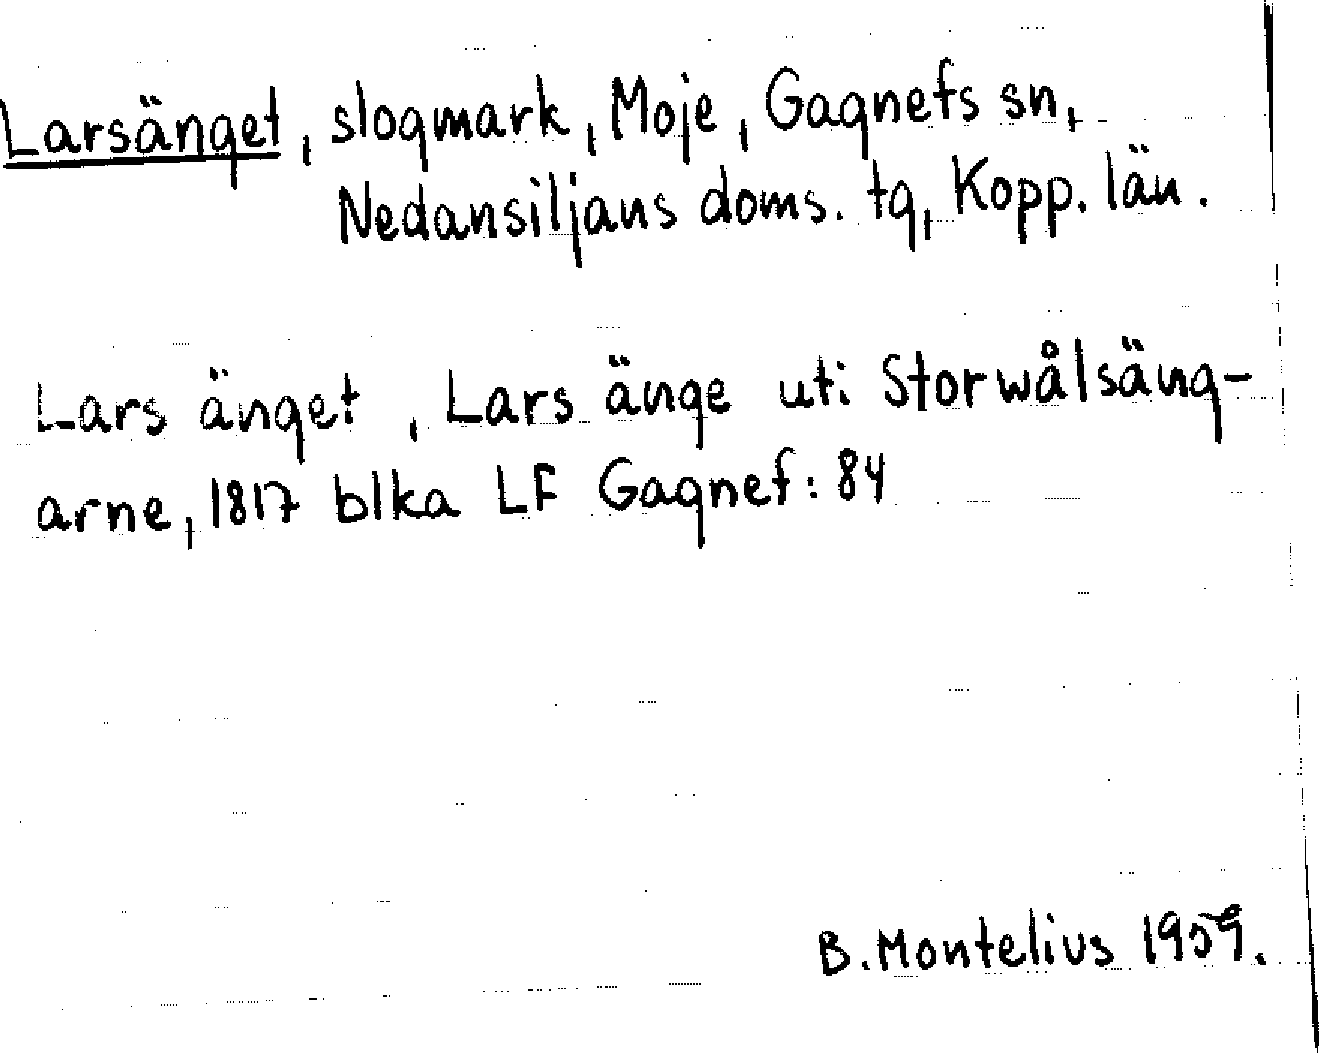 Larsänget, slogmark, Moje, Gagnefs sn,
Nedansiljans doms. tg, Kopp. län.
Lars änget, Lars änge uti Storwålsäng-
arne, 1817 blka LF Gagnef: 84
B. Montelius 1959.